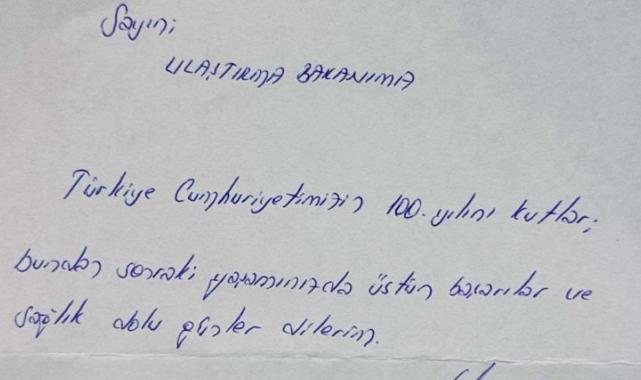 Sayın;
ULAŞTIRMA BAKANIMA
Türkiye Cumhuriyetimizin 100. yılını kutlar;
bundan sonraki yaşamınızda üstün başarılar ve
sağlık dolu günler dilerim.